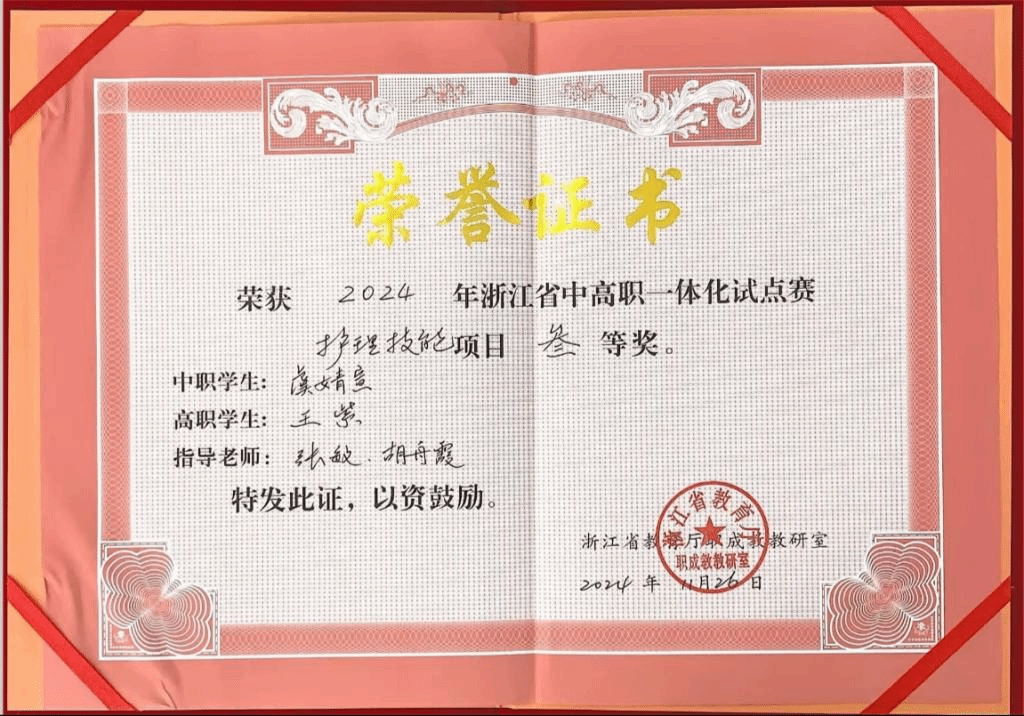 荣誉证书
荣获 2024 年浙江省中高职一体化试点赛
护理技能项目 叁 等奖。
中职学生：虞婧萱
高职学生：王紫
指导老师：张敏、胡舟霞
特发此证，以资鼓励。
浙江省教育厅职成教教研室
浙江省教育厅
职成教教研室
2024 年 11 月 26 日